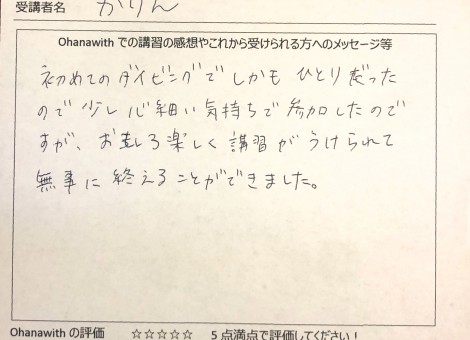 受講者名 かりん
Ohanawith での講習の感想やこれから受けられる方へのメッセージ等
初めてのダイビングでしかもひとりだった
ので少し心細い気持ちで参加したので
すが、おもしろ楽しく講習がうけられて
無事に終えることができました。
Ohanawith の評価 ☆☆☆☆☆ 5点満点で評価してください！